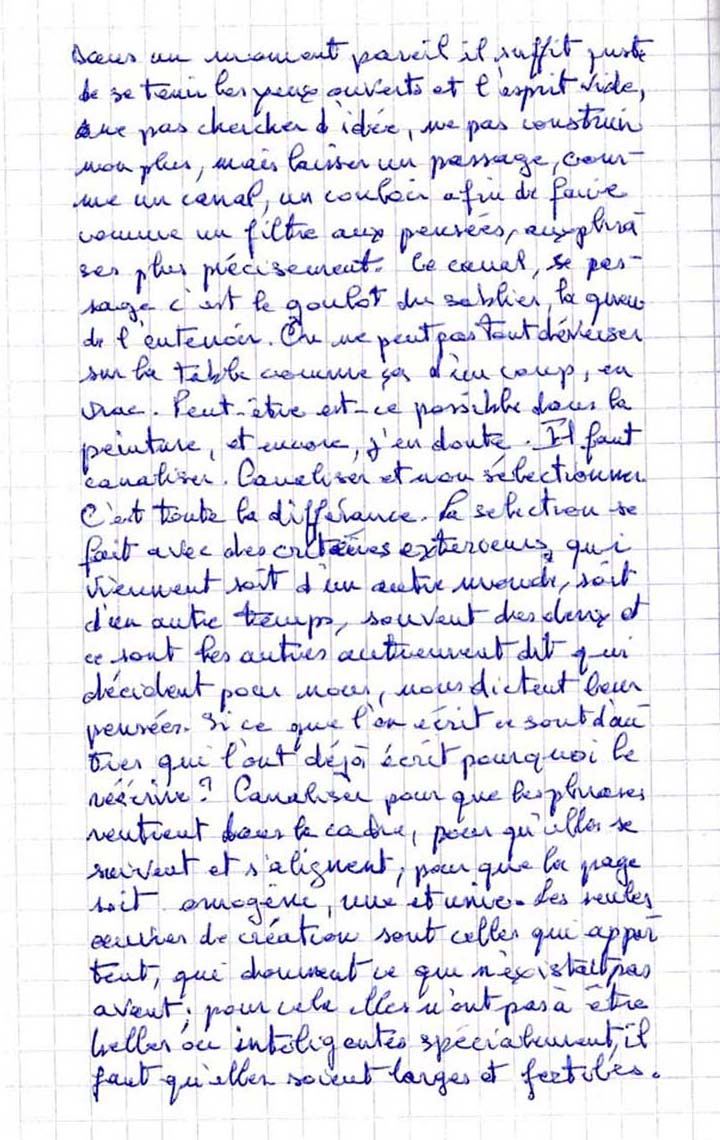 Dans un moment pareil il suffit juste
de se tenir les yeux ouverts et l'esprit vide,
ne pas chercher d'idée, ne pas construir
non plus, mais laisser un passage, com-
me un canal, un couloir afin de faire
comme un filtre aux pensées, aux phra-
ses plus précisement. Ce canal, se pas-
sage c'est le goulot du sablier, la queu
de l'entenoir. On ne peut pas tout déverser
sur la table comme ça d'un coup, en
vrac. Peut-être est-ce possible dans la
peinture, et encore, j'en doute. Il faut
canaliser. Canaliser et non sélectionner.
C'est toute la différance. La selection se
fait avec des critaires exterieurs, qui
viennent soit d'un autre monde, soit
d'un autre temps, souvent des deux et
ce sont les autres autrement dit qui
décident pour nous, nous dictent leur
pensées. Si ce que l'on écrit ce sont d'au-
tres qui l'ont déjà écrit pourquoi le
réécrire? Canaliser pour que les phrases
rentrent dans le cadre, pour qu'elles se
suivent et s'alignent, pour que la page
soit omogène, une et unie. Les seules
œuvres de création sont celles qui appor-
tent, qui donnent ce que n'existait pas
avant; pour cela elles n'ont pas à être
belles ou inteligentes spécialement, il
faut qu'elles soient larges et fertiles.